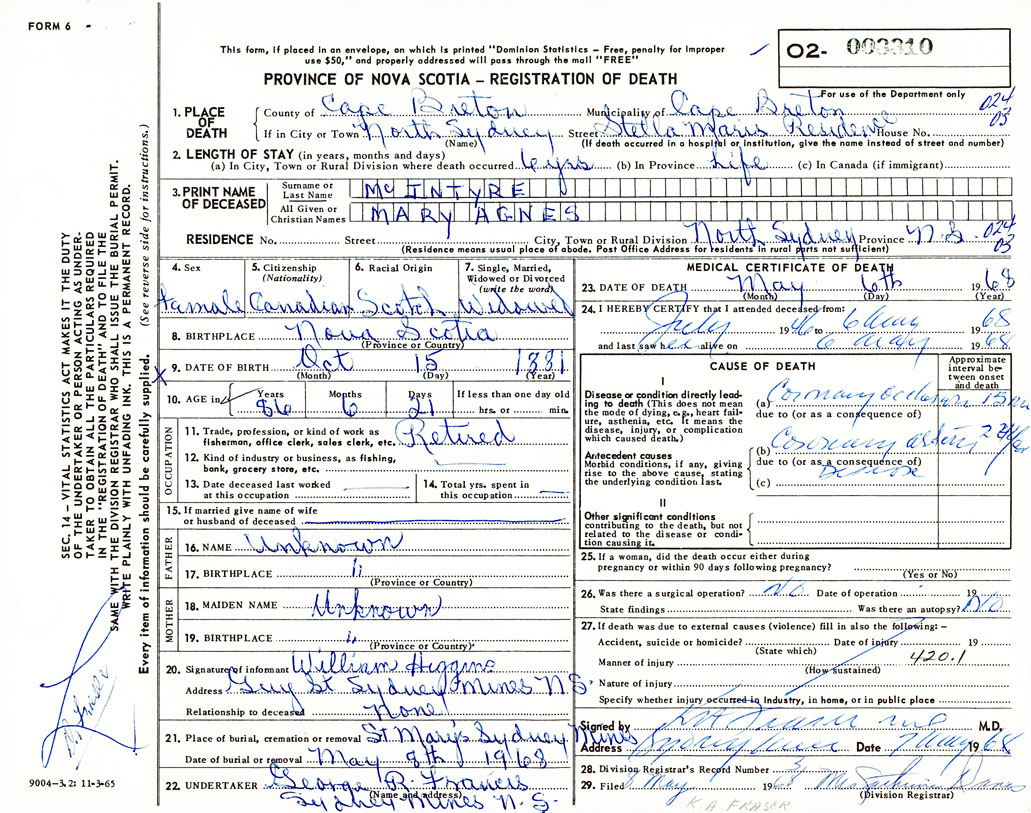 FORM 6 -
This form, if placed in an envelope, on which is printed "Dominion Statistics – Free, penalty for improper
use $50," and properly addressed will pass through the mail "FREE"
O2- 003310
PROVINCE OF NOVA SCOTIA – REGISTRATION OF DEATH
For use of the Department only
024
03
1. PLACE OF DEATH County of Cape Breton Municipality of Cape Breton
If in City or Town North Sydney Street Stella Maris Residence House No.
(Name) (If death occurred in a hospital or institution, give the name instead of street and number)
2. LENGTH OF STAY (in years, months and days)
(a) In City, Town or Rural Division where death occurred 6 yrs (b) In Province Life (c) In Canada (if immigrant)
3. PRINT NAME OF DECEASED Surname or Last Name McINTYRE
All Given or Christian Names MARY AGNES
RESIDENCE No. Street City, Town or Rural Division North Sydney Province N.S. 024
03
(Residence means usual place of abode. Post Office Address for residents in rural parts not sufficient)
4. Sex 5. Citizenship (Nationality) 6. Racial Origin 7. Single, Married, Widowed or Divorced (write the word)
Female Canadian Scotch Widowed
8. BIRTHPLACE Nova Scotia
(Province or Country)
X 9. DATE OF BIRTH Oct 15 1881
(Month) (Day) (Year)
10. AGE in Years Months Days If less than one day old
86 6 21 hrs. or min.
OCCUPATION
11. Trade, profession, or kind of work as fisherman, office clerk, sales clerk, etc. Retired
12. Kind of industry or business, as fishing, bank, grocery store, etc.
13. Date deceased last worked at this occupation
14. Total yrs. spent in this occupation
15. If married give name of wife or husband of deceased
FATHER
16. NAME Unknown
17. BIRTHPLACE "
(Province or Country)
MOTHER
18. MAIDEN NAME Unknown
19. BIRTHPLACE "
(Province or Country)
20. Signature of informant William Higgins
Address Guy St Sydney Mines N.S.
Relationship to deceased None
21. Place of burial, cremation or removal St Mary's Sydney Mines
Date of burial or removal May 8th 1968
22. UNDERTAKER George R. Francis
(Name and address)
Sydney Mines N.S.
MEDICAL CERTIFICATE OF DEATH
23. DATE OF DEATH May 6th 1968
(Month) (Day) (Year)
24. I HEREBY CERTIFY that I attended deceased from:
July 1946 to 6 May 68
and last saw her alive on 6 May 1968
CAUSE OF DEATH
Approximate interval between onset and death
I
Disease or condition directly leading to death (This does not mean the mode of dying, e.g., heart failure, asthenia, etc. It means the disease, injury, or complication which caused death.)
(a) Coronary occlusion 15
due to (or as a consequence of)
Antecedent causes
Morbid conditions, if any, giving rise to the above cause, stating the underlying condition last.
(b) Coronary artery
due to (or as a consequence of)
Disease
(c)
II
Other significant conditions contributing to the death, but not related to the disease or condition causing it.
25. If a woman, did the death occur either during pregnancy or within 90 days following pregnancy?
(Yes or No)
26. Was there a surgical operation? NO Date of operation 19
State findings Was there an autopsy? NO
27. If death was due to external causes (violence) fill in also the following: –
Accident, suicide or homicide? Date of injury 19
(State which)
Manner of injury 420.1
(How sustained)
Nature of injury
Specify whether injury occurred in industry, in home, or in public place
Signed by Fraser M.D.
Address Sydney Mines Date 7 May 1968
28. Division Registrar's Record Number
29. Filed May 19
(Division Registrar)
K.A. FRASER
SEC. 14 – VITAL STATISTICS ACT MAKES IT THE DUTY
OF THE UNDERTAKER OR PERSON ACTING AS UNDER-
TAKER TO OBTAIN ALL THE PARTICULARS REQUIRED
IN THE "REGISTRATION OF DEATH" AND TO FILE THE
SAME WITH THE DIVISION REGISTRAR WHO SHALL ISSUE THE BURIAL PERMIT.
WRITE PLAINLY WITH UNFADING INK. THIS IS A PERMANENT RECORD.
Every item of information should be carefully supplied. (See reverse side for instructions.)
Fraser
9004–3.2: 11-3-65